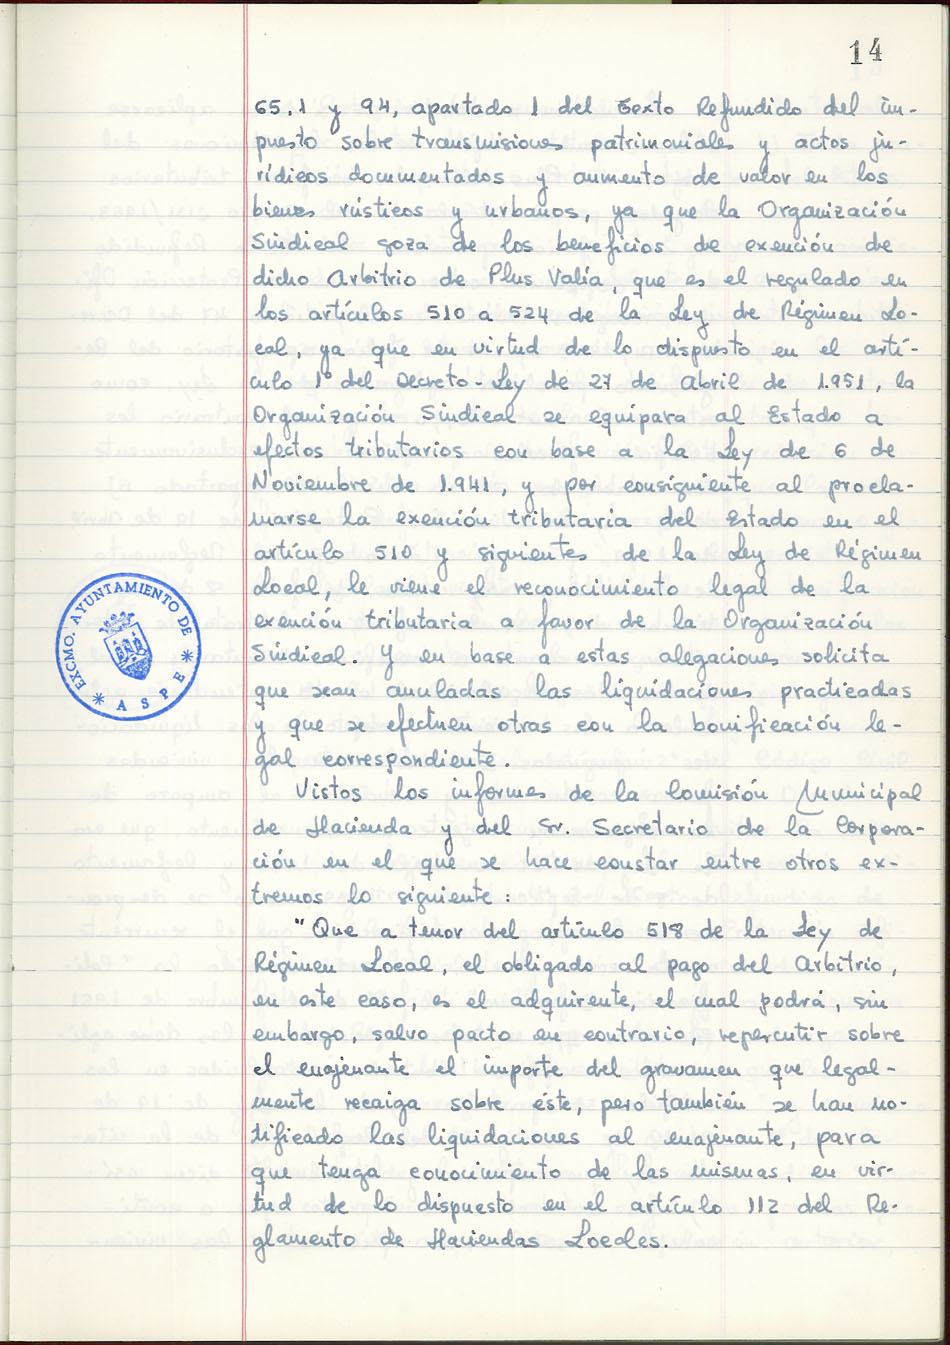 14
65,1 y 94, apartado 1 del Texto Refundido del im-
puesto sobre transmisiones patrimoniales y actos ju-
rídicos documentados y aumento de valor en los
bienes rústicos y urbanos, ya que la Organización
Sindical goza de los beneficios de exención de
dicho Arbitrio de Plus Valía, que es el regulado en
los artículos 510 a 524 de la Ley de Régimen Lo-
cal, ya que en virtud de lo dispuesto en el artí-
culo 1º del Decreto-Ley de 27 de Abril de 1.951, la
Organización Sindical se equipara al Estado a
efectos tributarios con base a la Ley de 6 de
Noviembre de 1.941, y por consiguiente al procla-
marse la exención tributaria del Estado en el
artículo 510 y siguientes de la Ley de Régimen
Local, le viene el reconocimiento legal de la
exención tributaria a favor de la Organización
Sindical. Y en base a estas alegaciones solicita
que sean anuladas las liquidaciones practicadas
y que se efectuen otras con la bonificación le-
gal correspondiente.
Vistos los informes de la Comisión Municipal
de Hacienda y del Sr. Secretario de la Corpora-
ción en el que se hace constar entre otros ex-
tremos lo siguiente:
"Que a tenor del artículo 518 de la Ley de
Régimen Local, el obligado al pago del Arbitrio,
en este caso, es el adquirente, el cual podrá, sin
embargo, salvo pacto en contrario, repercutir sobre
el enajenante el importe del gravamen que legal-
mente recaiga sobre éste, pero también se han no-
tificado las liquidaciones al enajenante, para
que tenga conocimiento de las mismas, en vir-
tud de lo dispuesto en el artículo 112 del Re-
glamento de Haciendas Locales.
EXCMO. AYUNTAMIENTO DE
* ASPE *